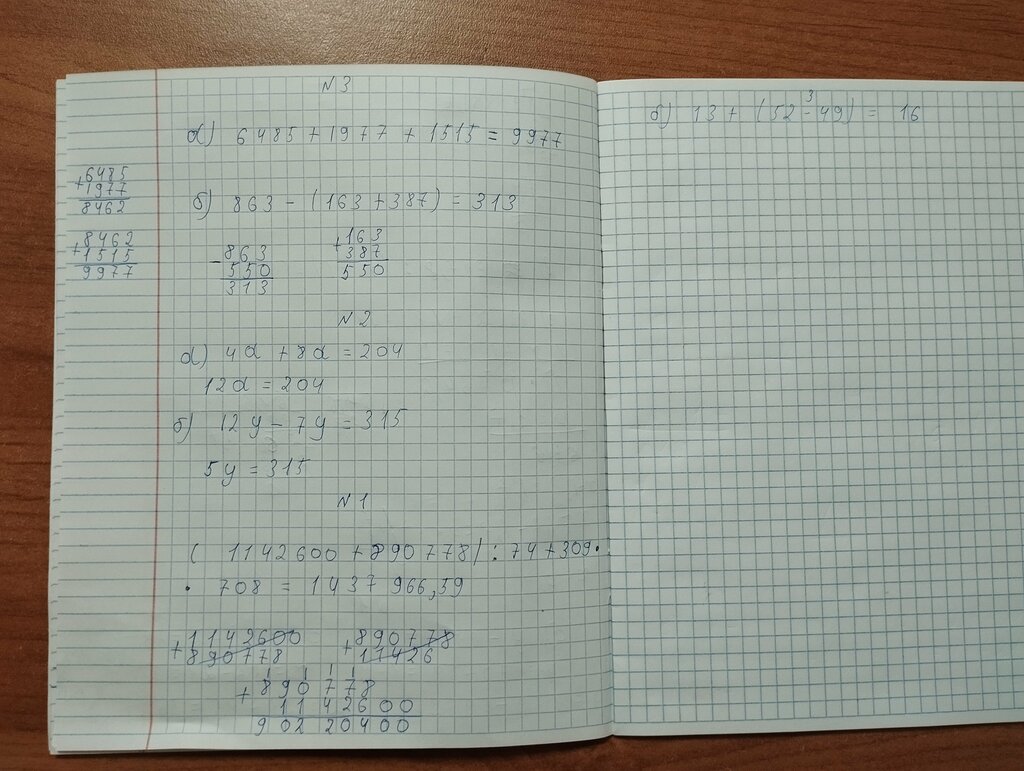 N3
а) 6485 + 1977 + 1515 = 9977
+6485
1977
8462
+8462
1515
9977
б) 863 - (163 + 387) = 313
-863
550
313
+163
387
550
N2
а) 4a + 8a = 204
12a = 204
б) 12y - 7y = 315
5y = 315
N1
( 1142600 + 890778) : 74 + 309 ·
· 708 = 1437 966,59
+1142600
890778
+890778
11426
1 1 1 1
+890778
1142600
902 20400
3
б) 13 + (52 - 49) = 16